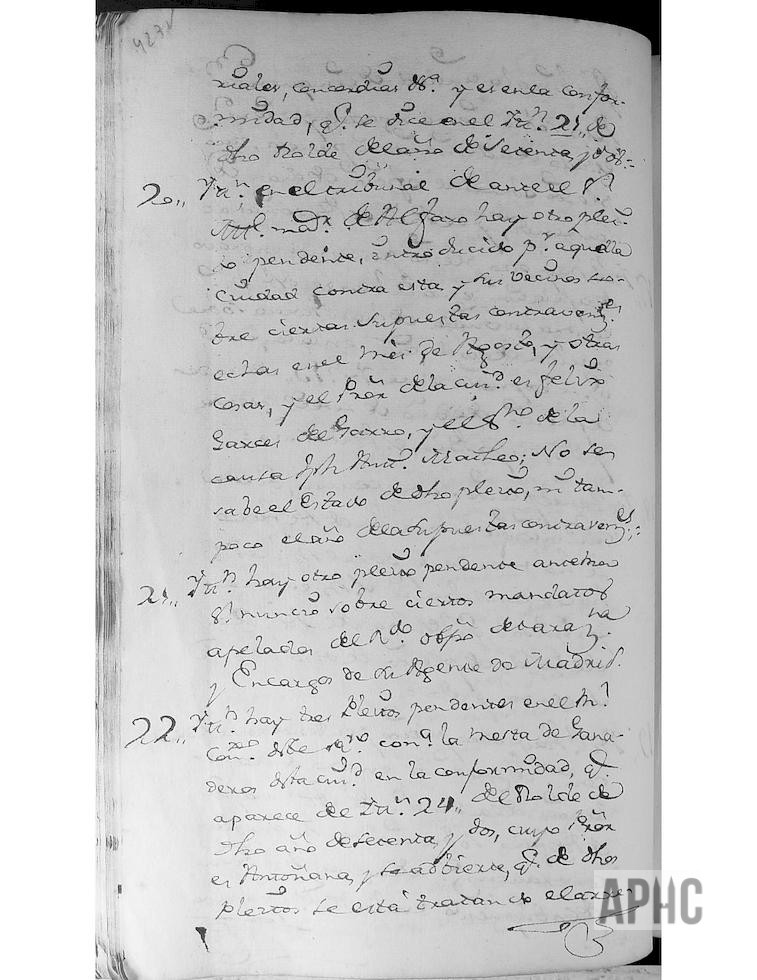 423v
riales, concordias &ª. y es en la confor-
midad, qᵉ. se dice en el Ittⁿ. 21,, de
dho Rolde del año de setenta, y dos:-
20,, Ittⁿ. en el tribunal de ante el Sʳ.
Alld. maʳ. de Alfaro hay otro pleι-
to pendente, introducido pʳ. aquella
ciudad contra esta y sus vecinos so-
bre ciertas supuestas contravenzˢ.
echas en el mes de Agosto, y otras
cosas, y el Prõr de la ciuᵈ. es felix
Garces de Garro, y el Sⁿᵒ. de la
causa Jph Antᵒ. Matheo; No se
sabe el Estado de dho pleito, ni tam-
poco el año de la supuestas contravenzˢ:-
21,, Ittⁿ. hay otro pleito pendente ante
Sʳ. nuncio sobre ciertos mandatos
apelados del Rᵈᵒ. obpõ de Tarazⁿᵃ.
y Encargos de su Agente de Madrid.
22,, Ittⁿ. hay tres Pleitos pendentes en el Rˡ.
Conᵒ. deste Rⁿᵒ. conᵃ. la mesta de Gana-
deros desta ciuᵈ. en la conformidad, qᵉ.
aparece de Ittⁿ. 24,, del Rolde de
dho año de setenta, y dos, cuyo Prõr
es Antoñana, y se adbierte, qᵉ. de dhos
pleitos se está tratando el
APHC